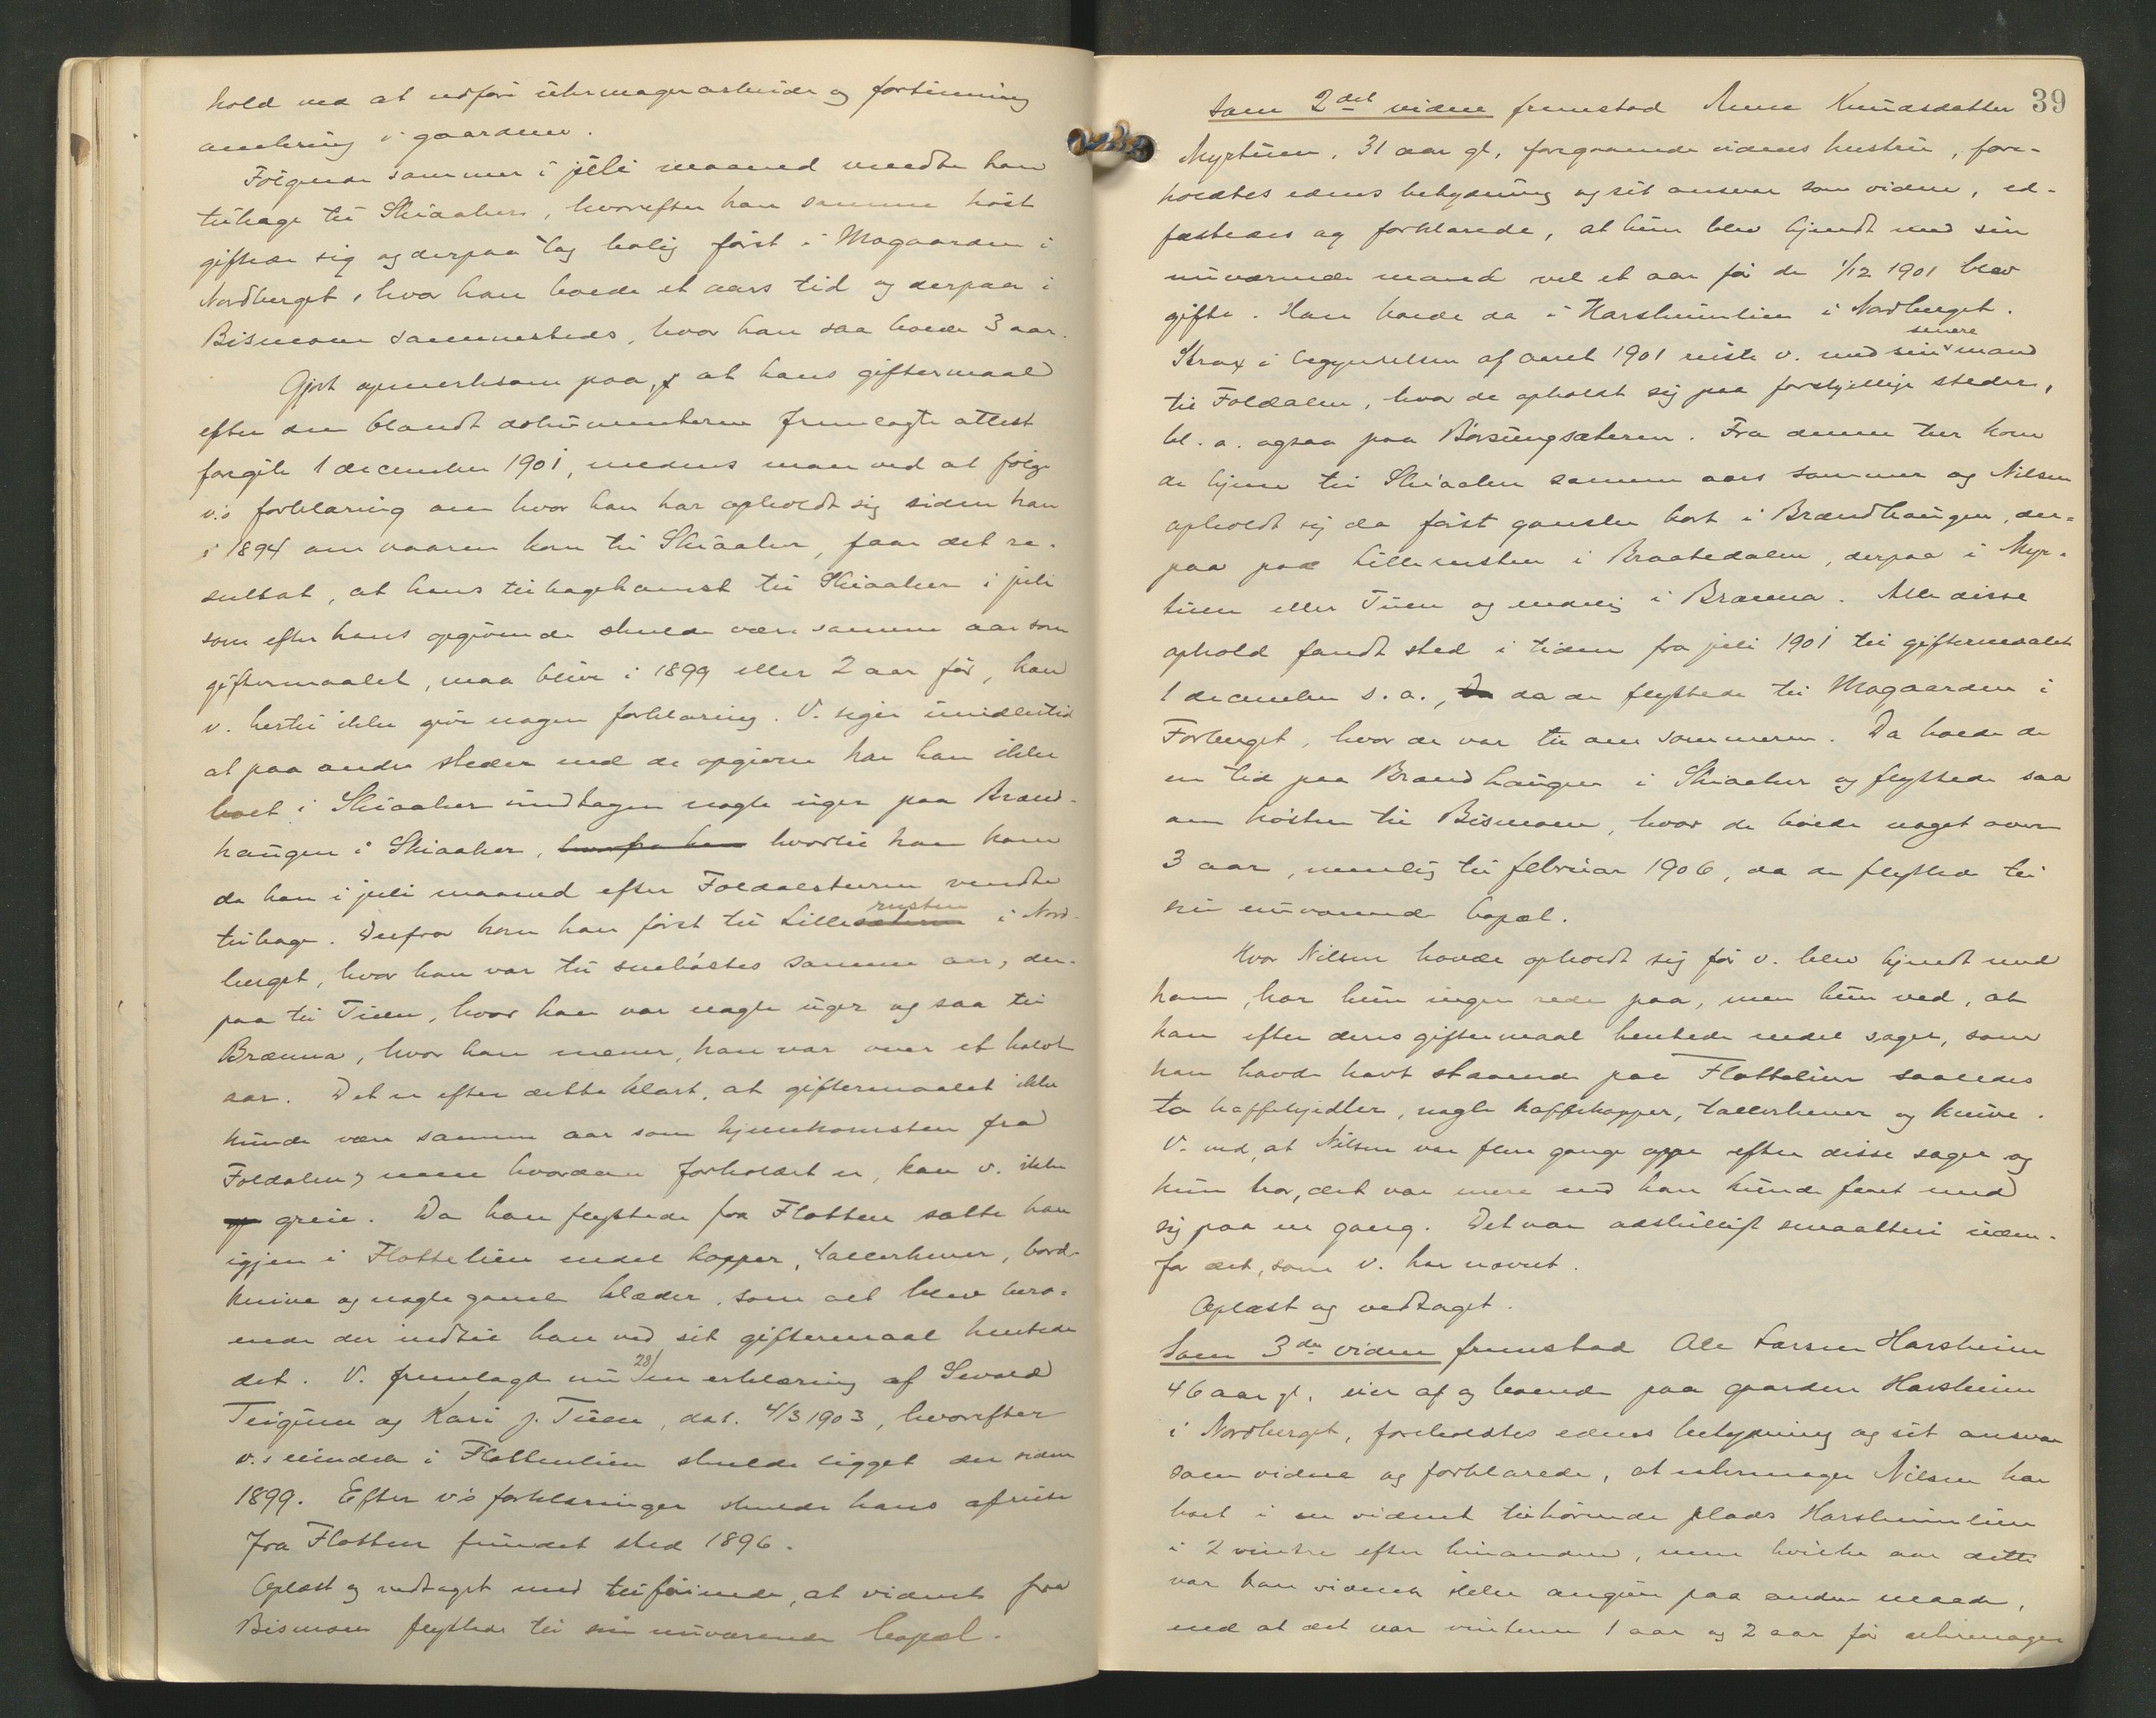 hold ved at udføre uhrmagerarbeide og fortinning
omkring i gaardene.
Følgende sommer i juli maaned vendte han
tilbage til Skiaaker, hvorefter han samme høst
giftede sig og derpaa tog bolig først i Mogaarden i
Nordberget, hvor han boede et aars tid og derpaa i
Bismoen sammesteds, hvor han saa boede 3 aar.
Gjort opmerksom paa, at hans giftermaal
efter den blandt dokumenterne fremlagte attest
foregik 1 december 1901, medens man ved at følge
v.s forklaring om hvor han har opholdt sig siden han
i 1894 om vaaren kom til Skiaaker, faar det re-
sultat, at hans tilbagekomst til Skiaaker i juli
som efter hans opgivende skulde være samme aar som
giftermaalet, maa blive i 1899 eller 2 aar før, kan
v. hertil ikke give nogen forklaring. V. siger imidlertid
at paa andre steder end de opgivne har han ikke
boet i Skiaaker undtagen nogle uger paa Brænd-
haugen i Skiaaker, hvorfra han hvortil han kom
da han i juli maaned efter Foldalsturen vendte
tilbage. Derfra kom han først til Lillesæteren rusten i Nord-
berget, hvor han var til snehøstes samme aar, der-
paa til Tuen, hvor han var nogle uger og saa til
Brænna, hvor han mener, han var over et halvt
aar. Det er efter dette klart, at giftermaalet ikke
kunde være samme aar som hjemkomsten fra
Foldalen, men hvordan forholdet er, kan v. ikke
op greie. Da han flyttede fra Flotten satte han
igjen i Flottelien endel kopper, tallerkener, bord-
knive og nogle gamle klæder, som alt blev bero-
ende der indtil han ved sit giftermaal hentede
det. V. fremlagde nu 28/ en erklæring af Sevald
Teigum og Kari J. Tuen, dat. 4/3 1903, hvorefter
v.s eiendele i Flottenlien skulde ligget der siden
1899. Efter v's forklaringer skulde hans afreise
fra Flotten fundet sted 1896.
Oplæst og vedtaget med tilføiende, at vidnet fra
Bismoen flyttede til sin nuværende bopæl.
39
Som 2det vidne fremstod Anne Knudsdatter
Myrtuen, 31 aar gl, foregaaende vidnes hustru, fore-
holdtes edens betydning og sit ansvar som vidne, ed-
fæstedes og forklarede, at hun blev kjendt med sin
nuværende mand vel et aar før de 1/12 1901 blev
gifte. Han boede da i Harsheimlien i Nordberget.
Strax i begyndelsen af aaret 1901 reiste v. med sin senere mand
til Foldalen, hvor de opholdt sig paa forskjellige steder,
bl. a. ogsaa paa Børsungsæteren. Fra denne tur kom
de hjem til Skiaaker samme aars sommer og Nilsen
opholdt sig da først ganske kort i Brændhaugen, der-
paa paa Lillerusten i Braatedalen, derpaa i Myr-
tuen eller Tuen og endelig i Brænna. Alle disse
ophold fandt sted i tiden fra juli 1901 til giftermaalet
1 december s. a., da da de flyttede til Mogaarden i
Forberget, hvor de var til om sommeren. Da boede de
en tid paa Brændhaugen i Skiaaker og flyttede saa
om høsten til Bismoen, hvor de boede noget over
3 aar, nemlig til februar 1906, da de flyttede til
sin nuværende bopæl.
Hvor Nilsen havde opholdt sig før v. blev kjendt med
ham, har hun ingen rede paa, men hun ved, at
han efter deres giftermaal hentede endel sager, som
han havde havt staaende paa Flottelien saaledes
to kaffekjedler, nogle kaffekopper, tallerkener og knive.
V. ved, at Nilsen var flere gange oppe efter disse sager og
hun tror, det var mere end han kunde faaet med
sig paa en gang. Det var adskilligt smaatteri uden-
for det, som v. har nævnt.
Oplæst og vedtaget.
Som 3die vidne fremstod Ole Larsen Harsheim
46 aar gl. eier af og boende paa gaarden Harsheim
i Nordberget, foreholdtes edens betydning og sit ansvar
som vidne og forklarede, at uhrmager Nilsen har
boet i en vidnet tilhørende plads Harsheimlien
i 2 vintre efter hinanden, men hvilke aar dette
var kan vidnet ikke angive paa anden maade,
end at det var vinteren 1 aar og 2 aar før uhrmager